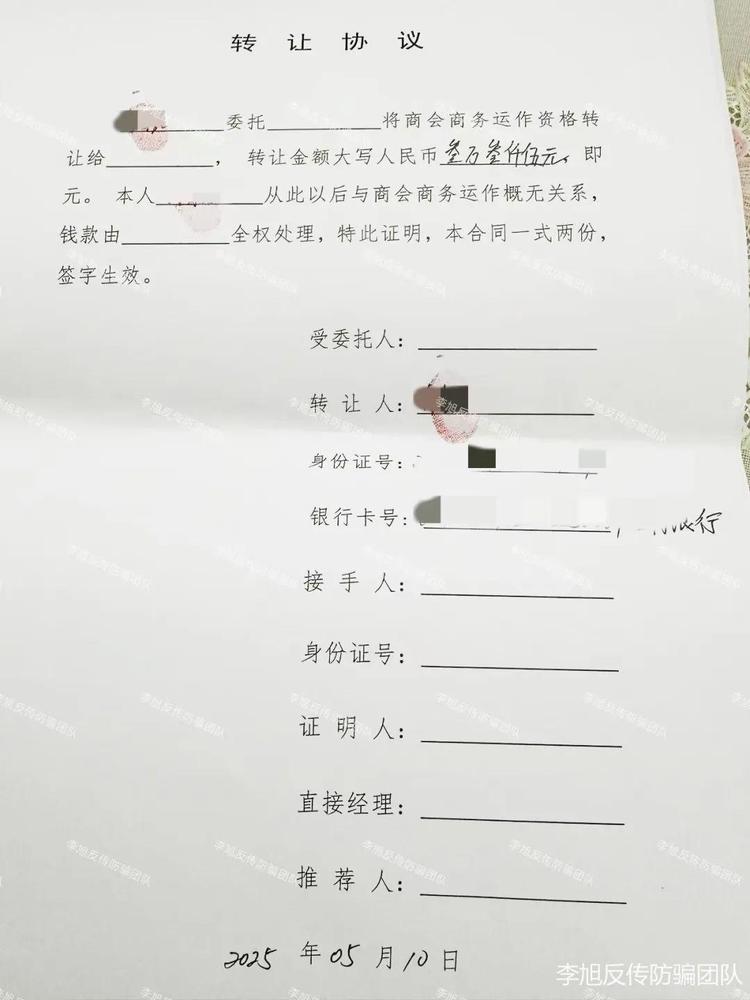 转 让 协 议
委托 将商会商务运作资格转
让给 ， 转让金额大写人民币 叁万叁仟伍元。即
元。 本人 从此以后与商会商务运作概无关系，
钱款由 全权处理，特此证明，本合同一式两份，
签字生效。
受委托人：
转 让 人：
身份证号：
银行卡号： 银行
接 手 人：
身份证号：
证 明 人：
直接经理：
推 荐 人：
2025 年 05 月 10 日
李旭反传防骗团队